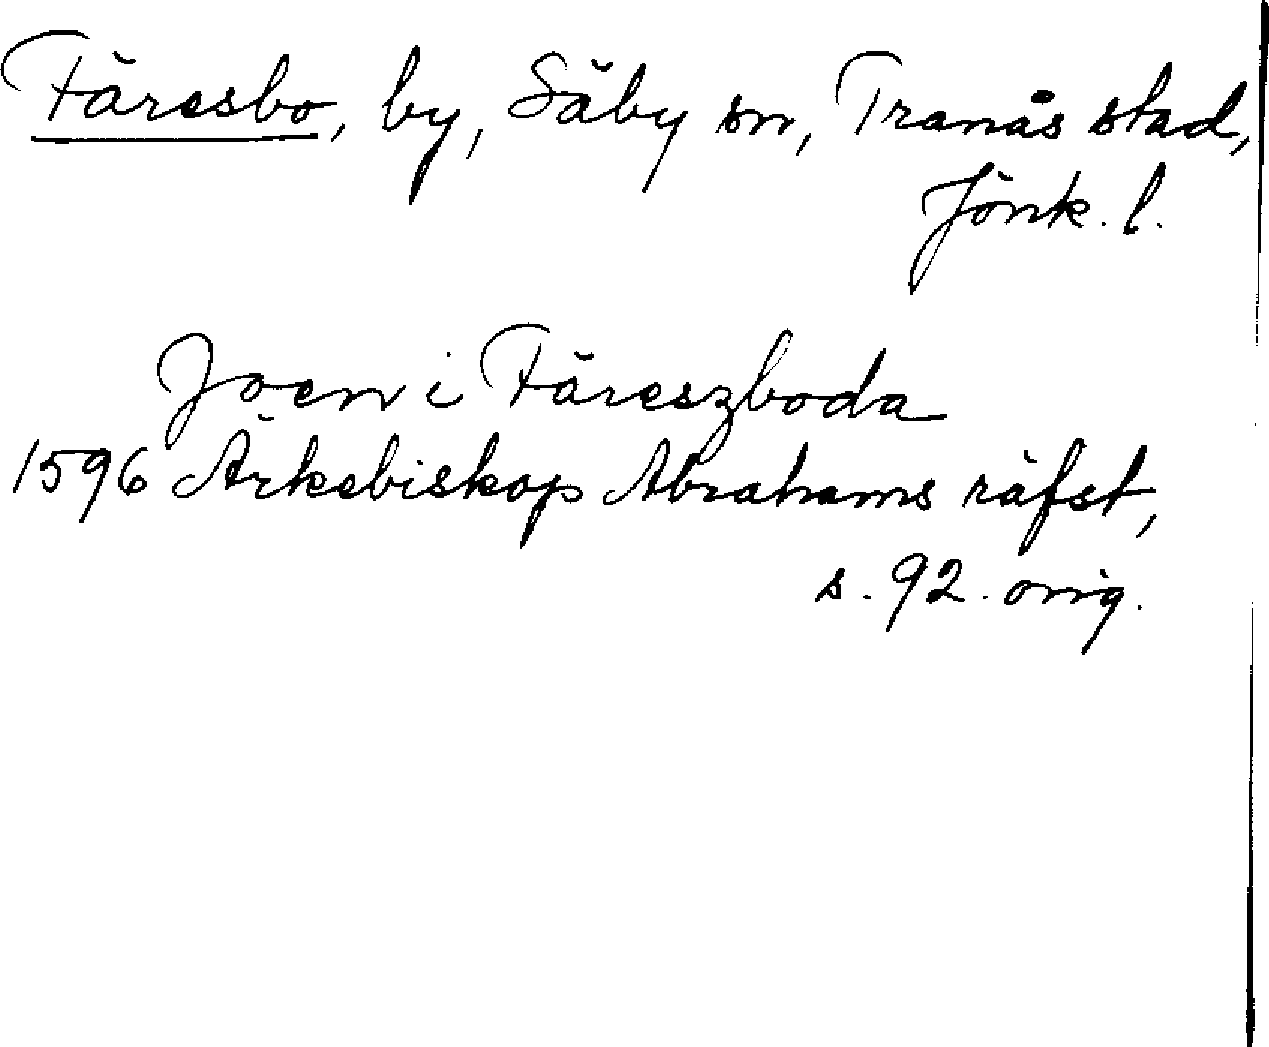 Färesbo, by, Säby sn, Tranås stad,
Jönk. l.
Joen i Färeszboda
1596 Ärkebiskop Abrahams räfst,
s. 92. orig.